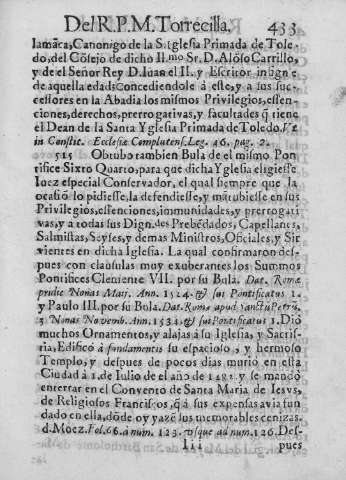 Del R. P. M. Torrecilla. 433
lamãca, Canonigo de la S. Iglesia Primada de Tole
do, del Cõsejo de dicho Il.mo Sr. D. Alõso Carrillo,
y de el Señor Rey D. Iuan el II. y Escritor insigne
de aquella edad; concediendole à este, y a sus suc-
cessores en la Abadia los mismos Privilegios, essen-
ciones, derechos, prerrogativas, y facultades q̃ tiene
el Dean de la Santa Yglesia Primada de Toledo. Vt
in Constit. Ecclesiæ Complutens. Leg. 46. pag. 2.
515 Obtubo tambien Bula de el mismo Pon-
tifice Sixto Quarto, para que dicha Yglesia eligiesse
Iuez especial Conservador, el qual siempre que la
ocasiõ lo pidiesse, la defendiesse, y mãtubiesse en sus
Privilegios, essenciones, immunidades, y prerrogati
vas, y a todas sus Dign.des Prebẽdados, Capellanes,
Salmistas, Seyses, y demas Ministros, Oficiales, y Sir
vientes en dicha Iglesia. La qual confirmaron des-
pues con clausulas muy exuberantes los Summos
Pontifices Clemente VII. por su Bula. Dat. Romæ
pridie Nonas Maij. Ann. 1524. & sui Pontificatus 1.
y Paulo III. por su Bula. Dat. Romæ apud Sanctũ Petrũ
3 Nonas Novemb. Ann. 1534. & sui Pontificatus 1. Diò
muchos Ornamentos, y alajas à su Iglesia, y Sacris-
ria, Edificò à fundamentis su espacioso, y hermoso
Templo, y despues de pocos dias murio en esta
Ciudad à 1. de Iulio de el año de 1482. y se mandò
enterrar en el Convento de Santa Maria de Iesvs,
de Religiosos Franciscos, q̃ à sus expensas avia fun
dado en ella, dõde oy yazẽ sus memorables cenizas.
d. Moez. Fol. 66. à num. 123. vsque ad num. 126. Des-
Iii pues